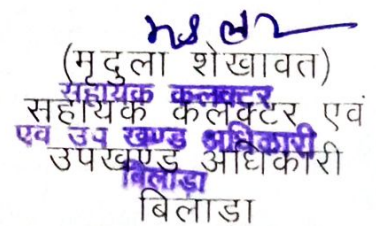 (मृदुला शेखावत)
सहायक कलक्टर
सहायक कलेक्टर एवं
एवं उप खण्ड अधिकारी
उपखण्ड अधिकारी
बिलाड़ा
बिलाडा